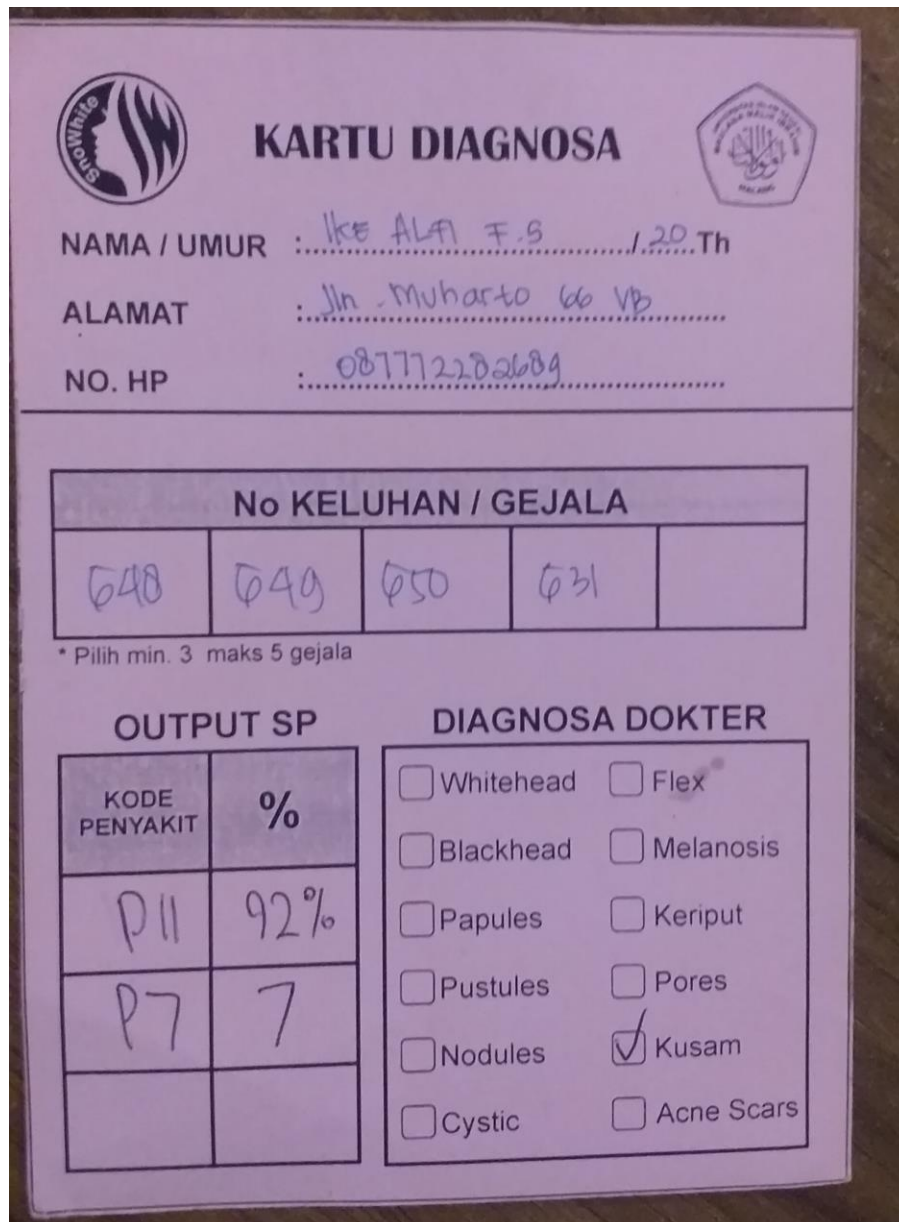 SnoWhite
KARTU DIAGNOSA
MALANG
NAMA / UMUR : IKE ALFI F.S / 20 Th
ALAMAT : Jln. Muharto 66 VB
NO. HP : 087772282689
No KELUHAN / GEJALA
G48 G49 G50 G31
* Pilih min. 3 maks 5 gejala
OUTPUT SP
KODE PENYAKIT %
P11 92%
P7 7
DIAGNOSA DOKTER
Whitehead Flex
Blackhead Melanosis
Papules Keriput
Pustules Pores
Nodules Kusam
Cystic Acne Scars